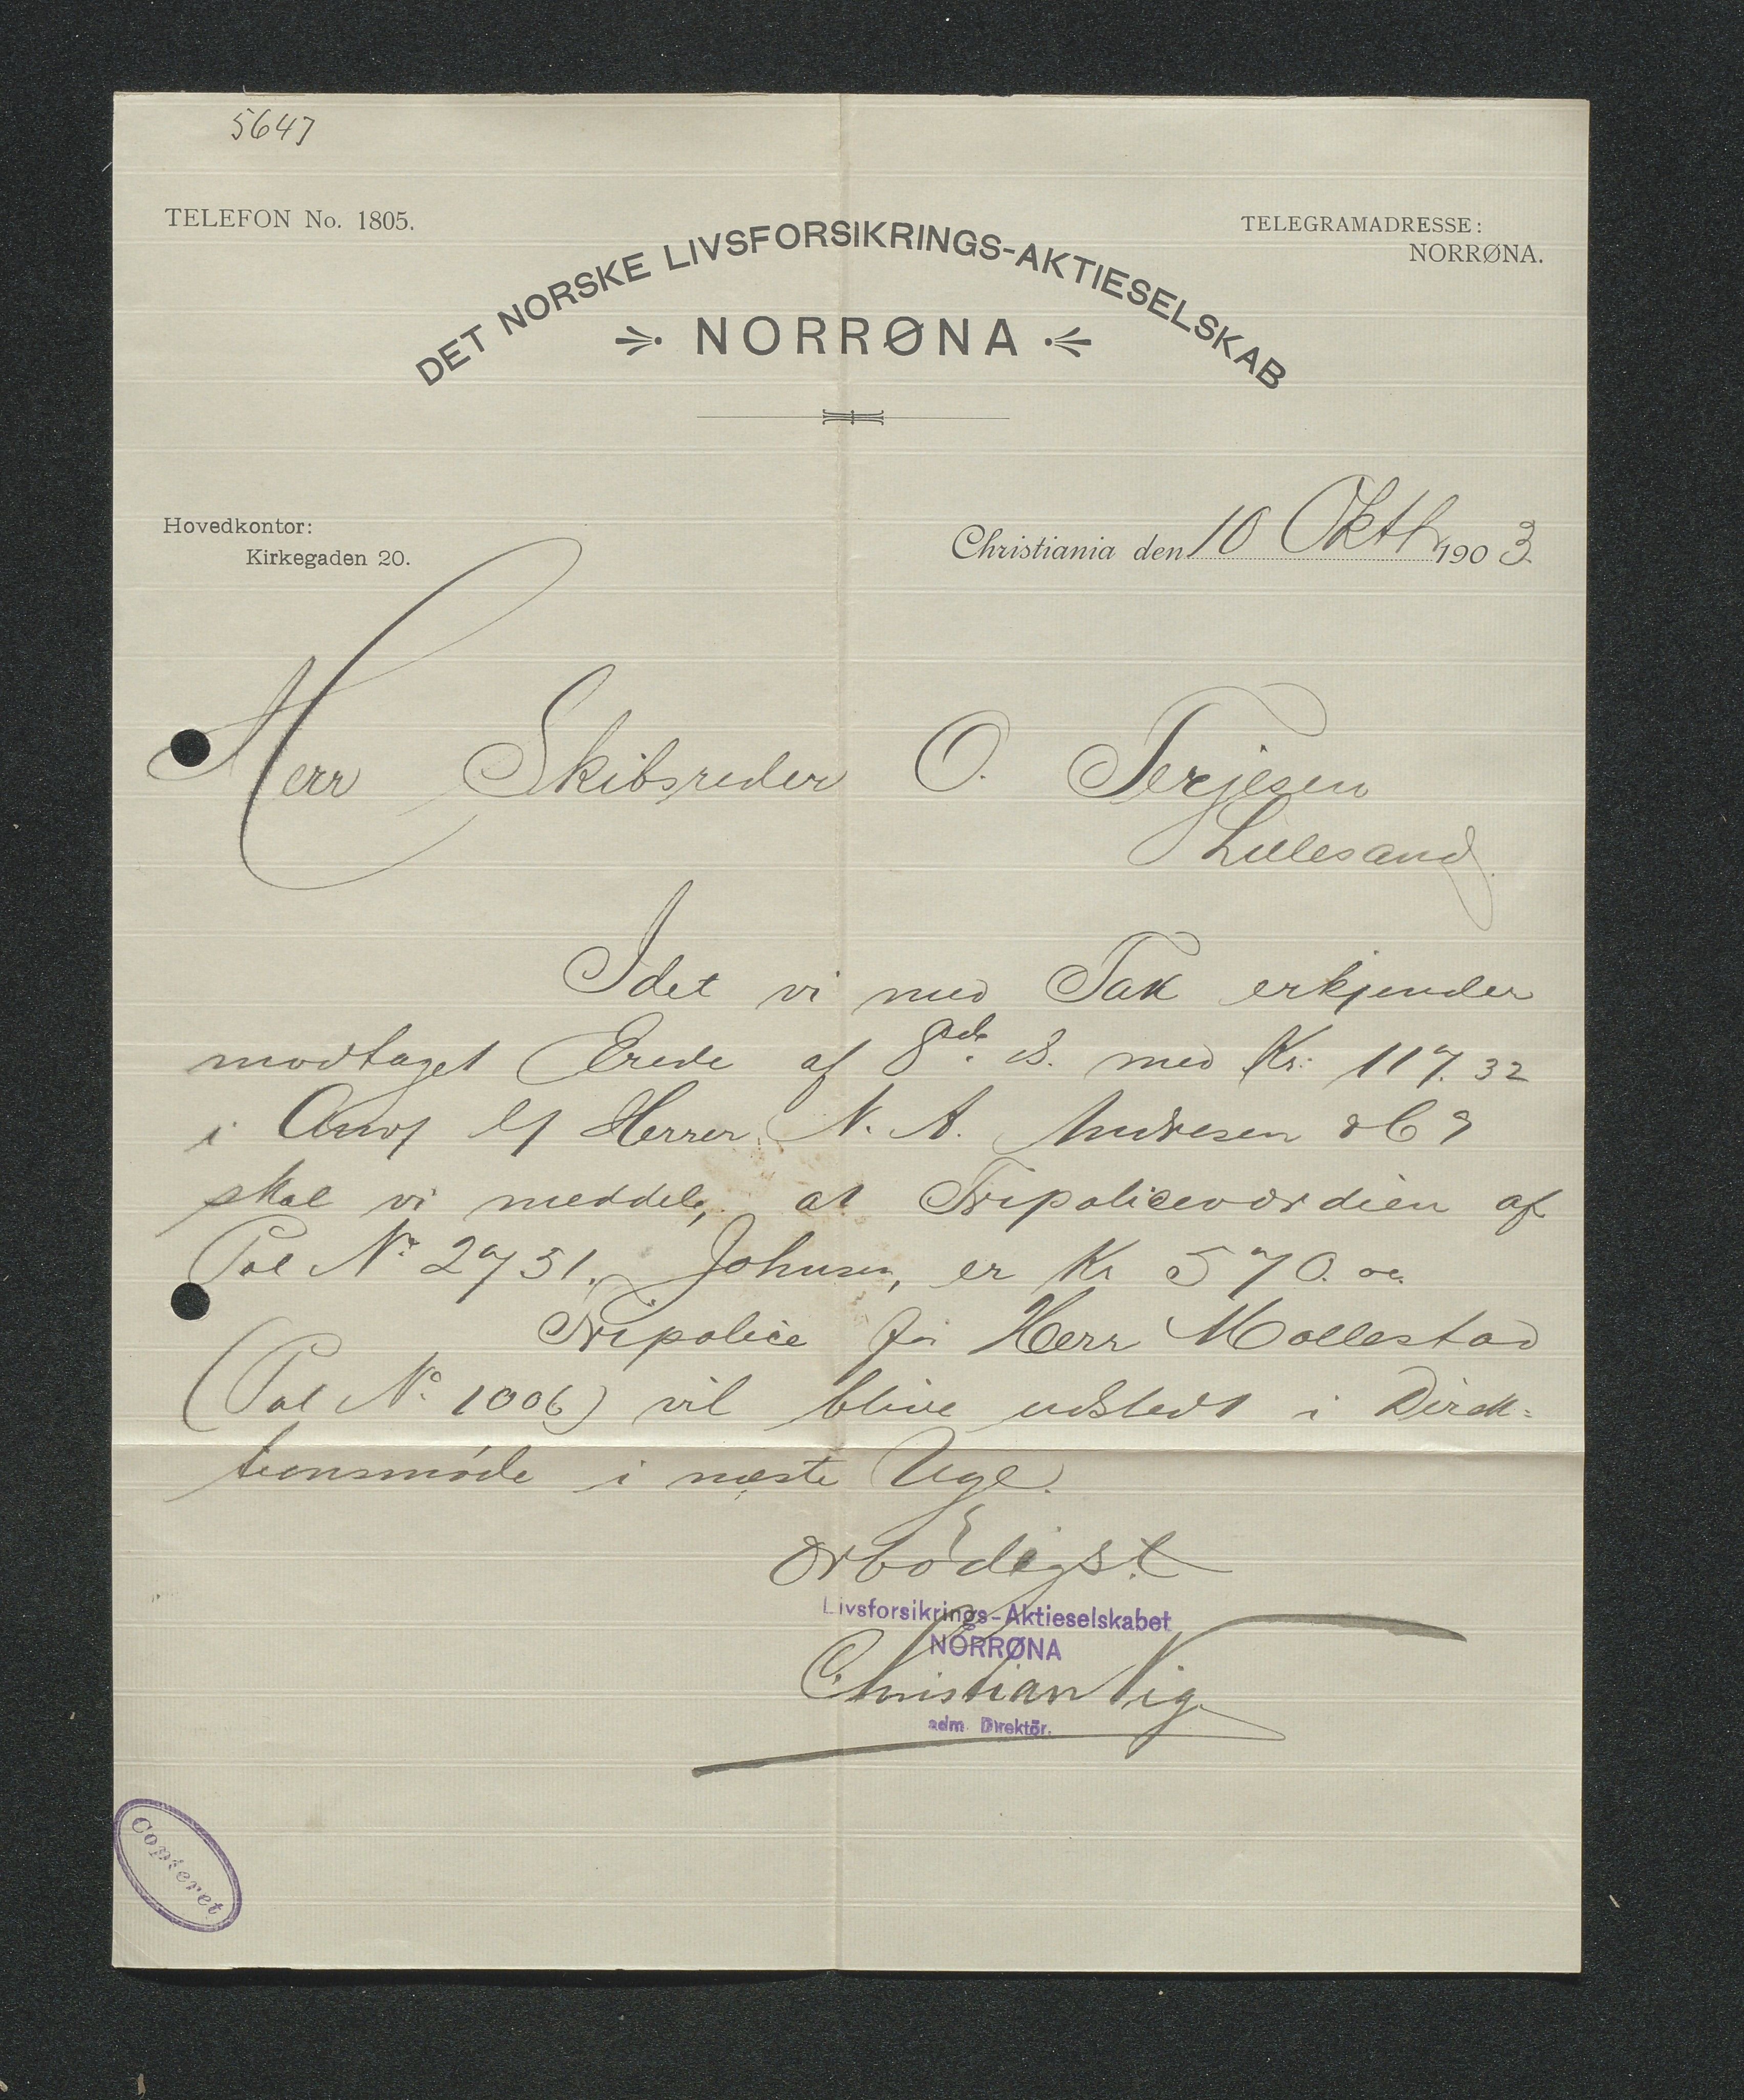 5647
TELEFON No. 1805.
TELEGRAMADRESSE:
NORRØNA.
DET NORSKE LIVSFORSIKRINGS-AKTIESELSKAB
NORRØNA
Hovedkontor:
Kirkegaden 20.
Christiania den 10 Oktb 1903.
Herr Skibsreder O. Terjesen
Lillesand.
Idet vi med Tak erkjender
modtaget Erede af 8de ds. med Kr: 117.32
i Anv Herrer N. A. Andresen & Co
skal vi meddele, at Fripoliceværdien af
Pol No 2731. Johnsen, er Kr 570.oo.
Fripolice for Herr Mollestad
(Pol No. 1006) vil blive udstedt i Direk=
tionsmøde i næste Uge.
Ærbødigst
Livsforsikrings-Aktieselskabet
NORRØNA
Christian Vig
adm. Direktör.
Copieret